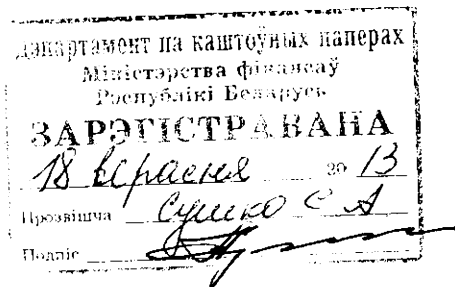 Дэпартамент па каштоўных паперах
Міністэрства фінансаў
Рэспублікі Беларусь
ЗАРЭГІСТРАВАНА
18 верасня 20 13
Прозвішча Сушко С А
Подпіс